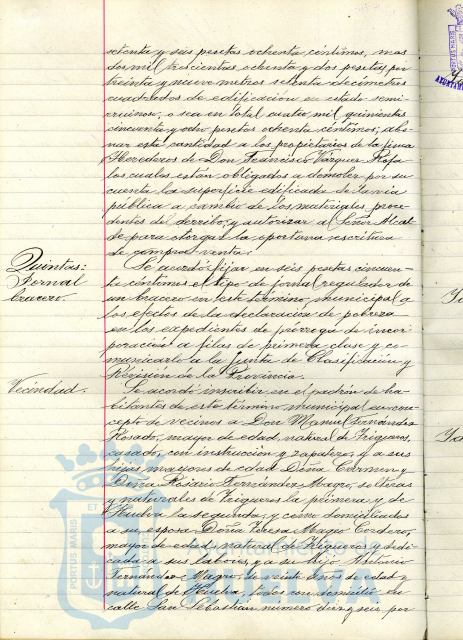 setenta y seis pesetas ochenta céntimos, mas
dos mil trescientas ochenta y dos pesetas por
treinta y nueve metros setenta decimetros
cuadrados de edificación en estado semi-
rruinoso, o sea en total cuatro mil quinientas
cincuenta y ocho pesetas ochenta céntimos; abo-
nar esta cantidad a los propietarios de la finca
Herederos de Don Francisco Vázquez
los cuales están obligados a demoler por su
cuenta la superficie edificada de la via
pública a cambio de los materiales, proce-
dentes del derribo; y autorizar al Señor Alcal-
de para otorgar la oportuna escritura
de compra venta.
Quintas:
Jornal
bracero.
Se acordó fijar en seis pesetas cincuen-
ta céntimos el tipo de jornal regulador de
un bracero en este término municipal a
los efectos de la declaración de pobreza
en los expedientes de prorroga de incor-
poración a filas de primera clase y co-
municarlo a la Junta de Clasificación y
Revisión de la Provincia.
Vecindad.
Se acordó inscribir en el padrón de ha-
bitantes de este término municipal en con-
cepto de vecinos a Don Manuel Fernández
Rosado, mayor de edad, natural de Trigueros,
casado, con instrucción y zapatero, y a sus
hijas mayores de edad Doña Carmen y
Doña Rosario Fernández Magro, solteras
y naturales de Trigueros la primera y de
Huelva la segunda; y como domiciliados
a su esposa Doña Teresa Magro Cordero,
mayor de edad, natural de Trigueros y dedi-
cada a sus labores, y a su hijo
Fernández Magro, de veinte años de edad y
natural de Huelva, todos con domicilio en
calle San Sebastian número diez y seis, por
PORTUS MARIS
ET
Ayuntamiento de
HUELVA